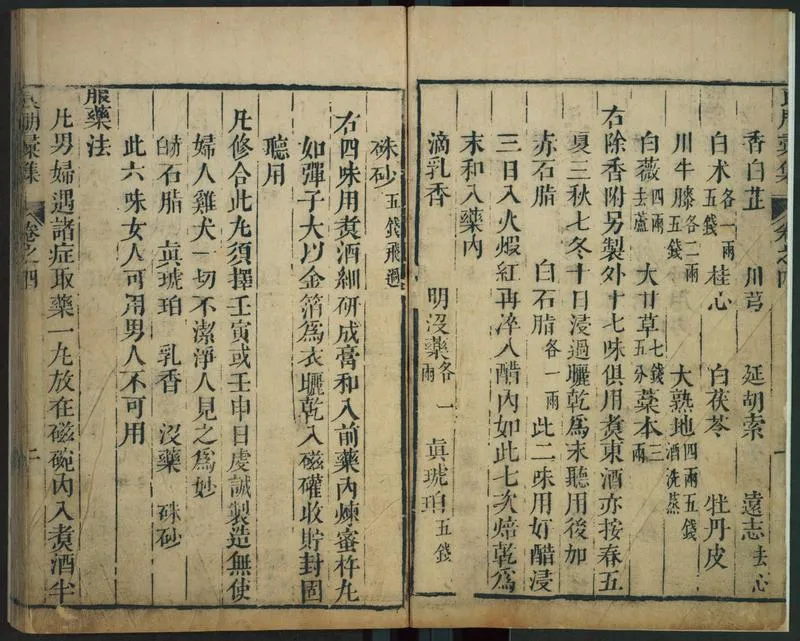 香白芷　川芎　延胡索　遠志去心
白术各一兩五錢　桂心　白茯苓　牡丹皮
川牛膝各二兩五錢　大熟地四兩五錢酒洗蒸
白薇四兩去蘆　大甘草七錢五分　藁本三兩
右除香附另製外十七味俱用煑東酒亦按春五
夏三秋七冬十日浸過曬乾為末聽用後加
赤石脂　白石脂各一兩　此二味用好醋浸
三日入火煆紅再淬入醋內如此七次焙乾為
末和入藥內
滴乳香　明沒藥各一兩　真琥珀五錢
硃砂五錢飛過
右四味用煑酒細研成膏和入前藥內煉蜜杵丸
如彈子大以金箔為衣曬乾入磁礶收貯封固
聽用
凡修合此丸須擇壬寅或壬申日虔誠製造無使
婦人雞犬一切不潔淨人見之為妙
赤白石脂　真琥珀　乳香　沒藥　硃砂
此六味女人可用男人不可用
服藥法
凡男婦遇諸症取藥一丸放在磁碗內入煑酒半
卷之四